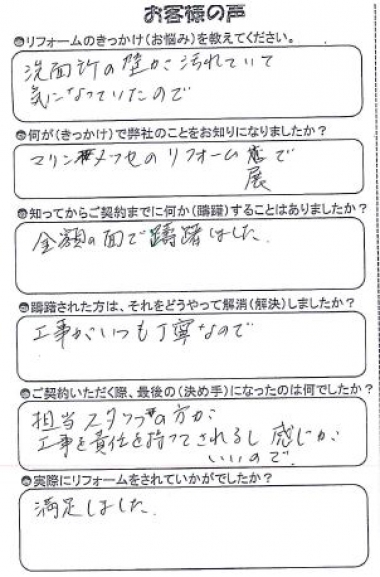 お客様の声
リフォームのきっかけ(お悩み)を教えてください。
洗面所の壁が汚れていて
気になっていたので
何が(きっかけ)で弊社のことをお知りになりましたか?
マリンメッセのリフォーム
で
展
知ってからご契約までに何か(躊躇)することはありましたか?
金額の面で躊躇しました.
躊躇された方は、それをどうやって解消(解決)しましたか?
工事がいつも丁寧なので
ご契約いただく際、最後の(決め手)になったのは何でしたか?
担当スタッフの方が
工事を責任を持ってされるし感じが
いいので.
実際にリフォームをされていかがでしたか?
満足しました.